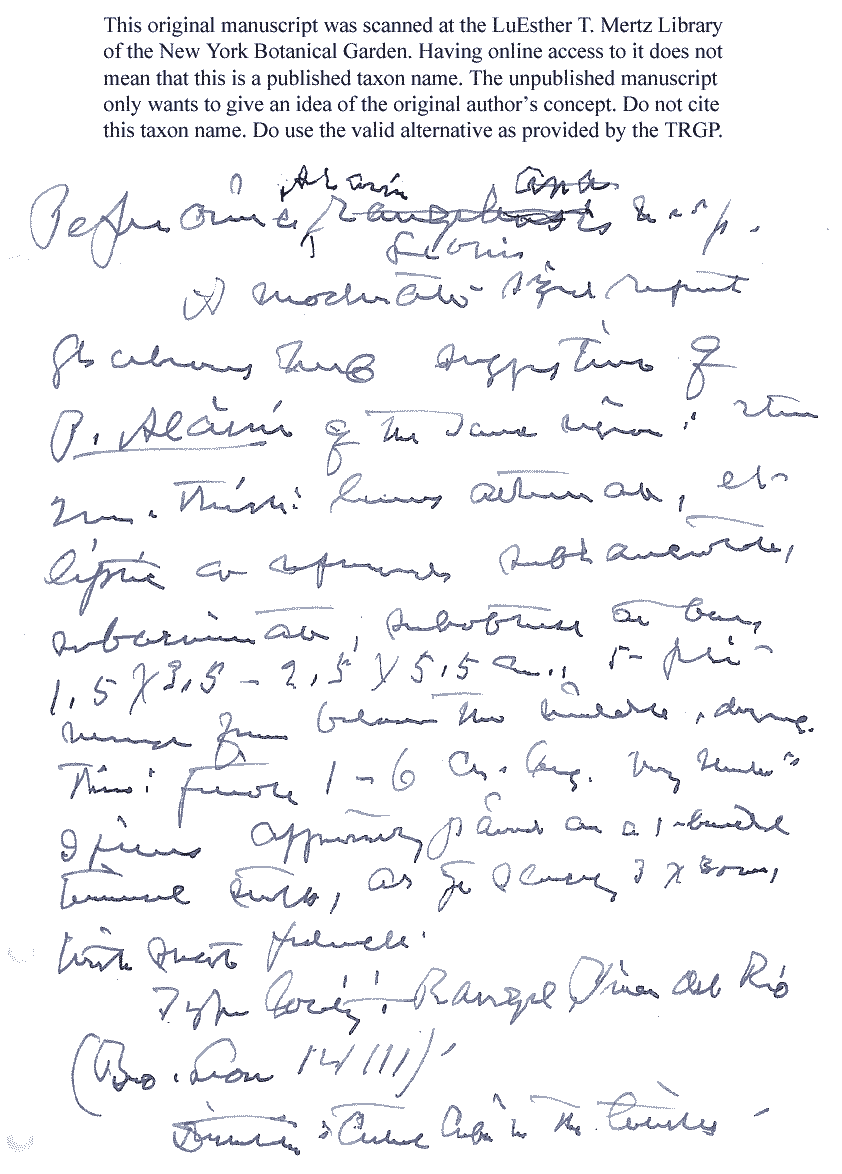 This original manuscript was scanned at the LuEsther T. Mertz Library
of the New York Botanical Garden. Having online access to it does not
mean that this is a published taxon name. The unpublished manuscript
only wants to give an idea of the original author's concept. Do not cite
this taxon name. Do use the valid alternative as provided by the TRGP.
n. sp.
A moderate sized repent
glabrous herb suggestive of
P. Alainii of the same region: stem
leaves alternate, el-
liptic or
subacuminate, subobtuse at base,
1.5 X 3.5 - 2.5 X 5.5 cm., 5-pli-
nerved from below the middle, drying
thin; petiole 1-6 cm. long, very slender
Spikes apparently paired on a 1-bracted
terminal stalk, as yet scarcely 3 X 30 mm,
with short peduncle.
Type locality: Rangel, Pinar del Rio
(Bro. Leon 14111)